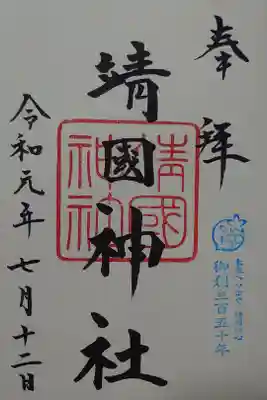 奉拝
靖國神社
靖國神社
御創立百五十年
令和元年七月十二日